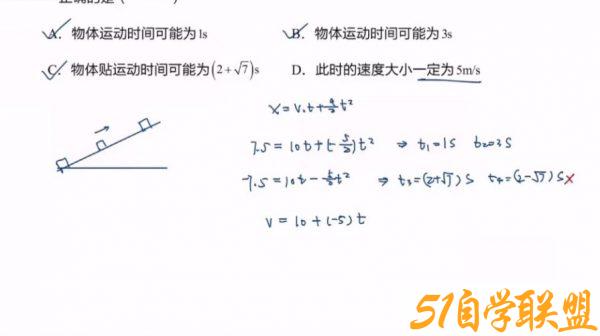 正确的是(
A. 物体运动时间可能为1s B. 物体运动时间可能为3s
C. 物体贴运动时间可能为(2+√7)s D. 此时的速度大小一定为5m/s
x=v₀t+a/2 t²
7.5=10t+(-5/2)t² ⇒ t₁=1s t₂=3s
-7.5=10t-5/2 t² ⇒ t₃=(2+√7)s t₄=(2-√7)s×
v=10+(-5)t
51自学联盟